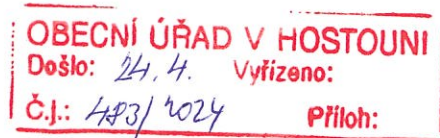 OBECNÍ ÚŘAD V HOSTOUNI
Došlo: 24.4. Vyřízeno:
Č.j.: 483/2024 Příloh: